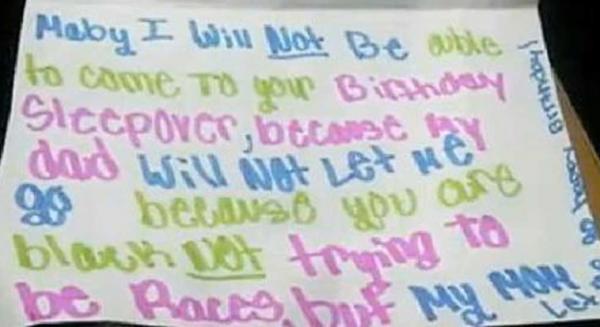 Maby I Will Not Be able
to come To your Birthday
Sleepover, because My
dad Will Not Let Me
go because you are
black Not trying to
be Races, but My Mom